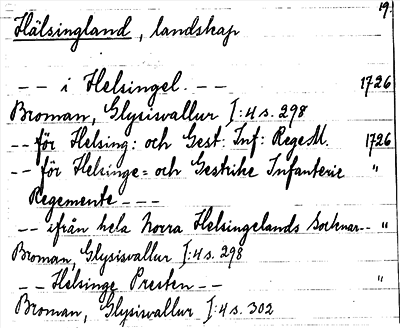 19.
Hälsingland, landskap
-- i Helsingel. -- 1726
Broman, Glysisvallur I:4 s. 298
-- för Helsing: och Gest: Inf: RegeM. 1726
-- för Helsinge= och Gestrike Infanterie "
Regemente ---
-- ifrån hela Norra Helsingelands Socknar -- "
Broman, Glysisvallur I:4 s. 298
-- Helsinge Presten -- "
Broman, Glysisvallur I:4 s. 302